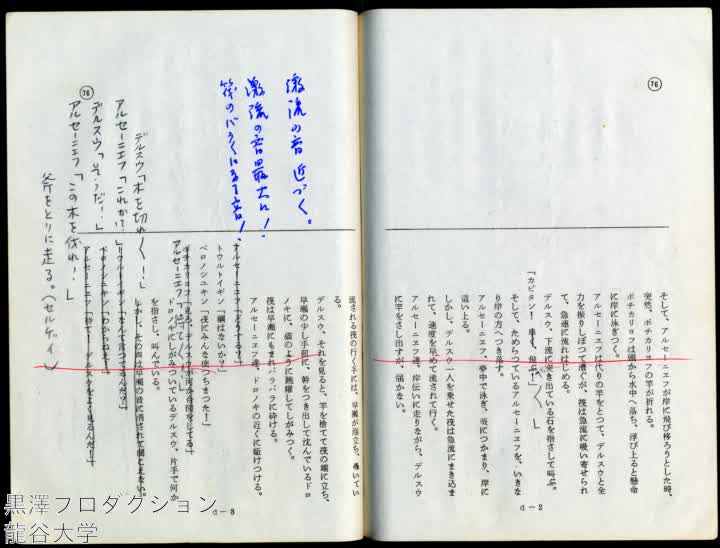 76
そして、アルセーニエフが岸に飛び移ろうとした時、
突然、ボチカリョフの竿が折れる。
ボチカリョフは頭から水中へ落ち、浮び上ると懸命
に岸に泳ぎつく。
アルセーニエフは代りの竿をとって、デルスウと全
力を振りしぼって漕ぐが、筏は急流に吸い寄せられ
て、急速に流れはじめる。
デルスウ、下流に突き出ている石を指さして叫ぶ。
「カピタン！早く、飛ぶ！」
そして、ためらっているアルセーニエフを、いきな
り岸の方へつき落す。
アルセーニエフ、夢中で泳ぎ、瓶につかまり、岸に
這い上る。
しかし、デルスウ一人を乗せた筏は急流にまき込ま
れて、速度を早めて流されて行く。
アルセーニエフ達、岸伝いに走りながら、デルスウ
に竿をさし出すが、届かない。
d-2
激流の音 近づく。
激流の音最大に！
筏のバラバラになる音！
流される筏の行く手には、早瀬が泡立ち、轟いてい
る。
デルスウ、それを見ると、竿を捨てて筏の端に立ち、
早瀬の少し手前に、幹をつき出して沈んでいるドロ
ノキに、猫のように跳躍してしがみつく。
筏は早瀬にもまれバラバラに砕ける。
アルセーニエフ達、ドロノキの近くに駈けつける。
アルセーニエフ「どうする？」
トウルトイギン「綱はないか？」
ベロノシュキン「筏にみんな使っちまった！」
ボチカリョフ「見ろ、デルスウが何か合図をしてる」
ドロノキにしがみついているデルスウ、片手で何か
を指さし、叫んでいる。
しかし、その声は早瀬の音に消されて聞こえない。
トウルトイギン「なんて言ってるんだ？」
ベロノシュキン「わからねえ！」
アルセーニエフ「待て！デルスウをよく見るんだ！」
76
デルスウ「木を切れ〳〵！」
アルセーニエフ「これか？」
デルスウ「そうだ！」
アルセーニエフ「この木を伐れ！」
斧をとりに走る。（セルゲイ）
d-3
黒澤プロダクション
龍谷大学